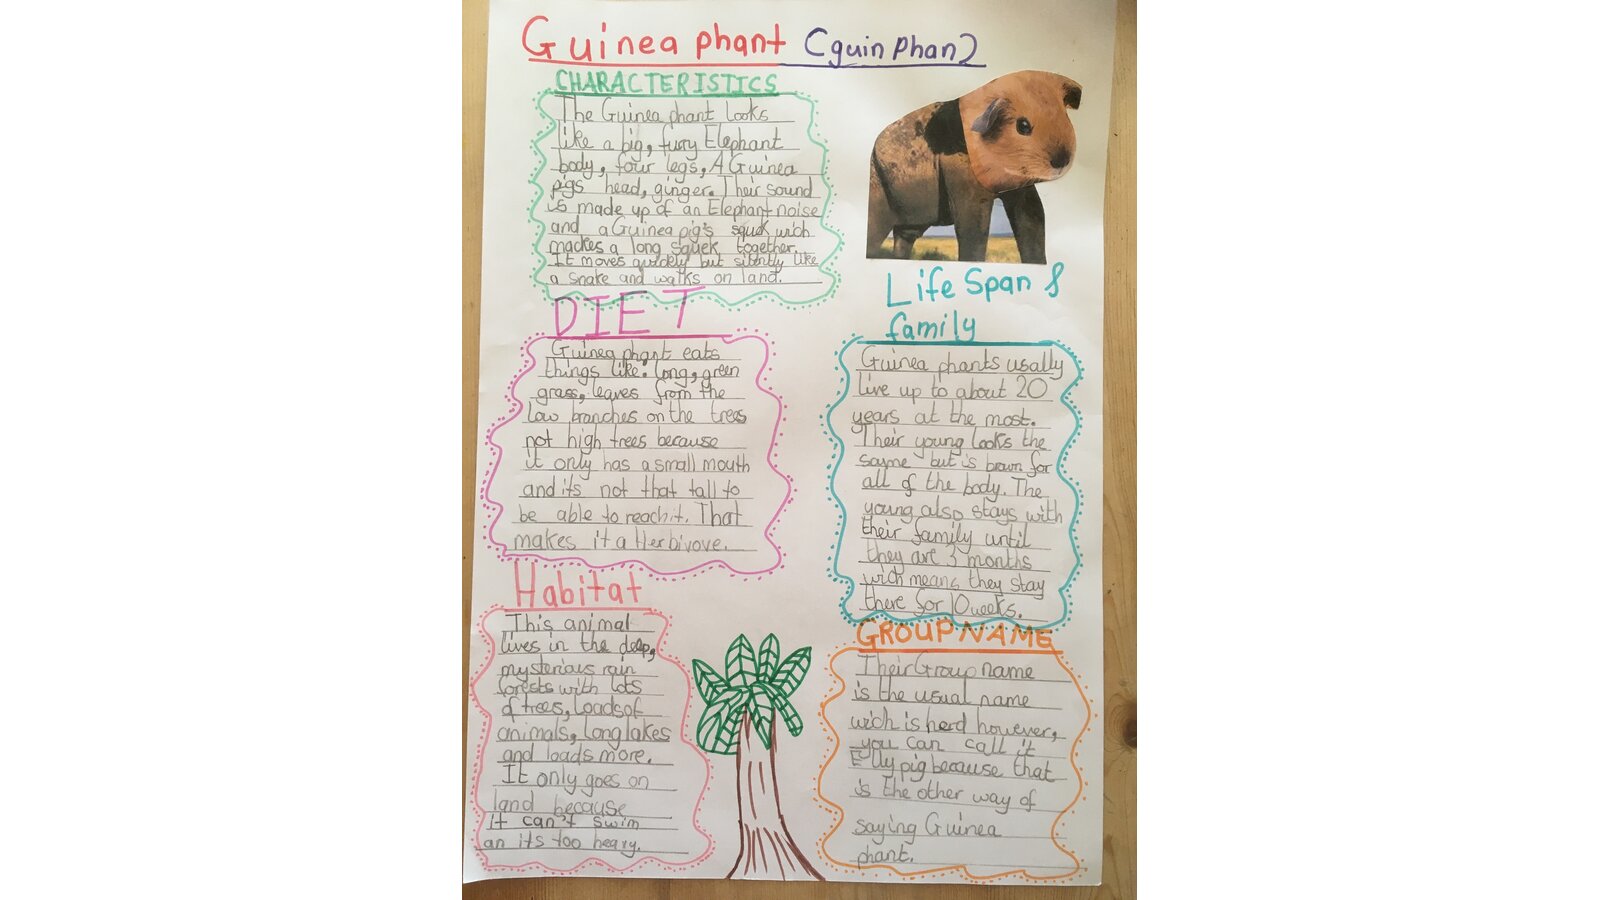 Guinea phant (guin phan)
CHARACTERISTICS
The Guinea phant looks
like a big, furry Elephant
body, four legs, A Guinea
pigs head, ginger. Their sound
is made up of an Elephant noise
and a Guinea pig's squek wich
mackes a long squek together.
It moves quickly but silently like
a snake and walks on land.
DIET
Guinea phant eats
things like: long, green
grass, leaves from the
low branches on the trees
not high trees because
it only has a small mouth
and its not that tall to
be able to reach it. That
makes it a Herbivove.
Habitat
This animal
lives in the deep,
mysterious rain
forests with lots
of trees, loads of
animals, long lakes
and loads more.
It only goes on
land because
it can't swim
an its too heavy.
Life Span &
family
Guinea phants usally
live up to about 20
years at the most.
Their young looks the
same but is brown for
all of the body. The
young also stays with
their family until
they are 3 months
wich means they stay
there for 10 weeks.
GROUP NAME
Their Group name
is the usual name
wich is herd however,
you can call it
Elly pig because that
is the other way of
saying Guinea
phant.